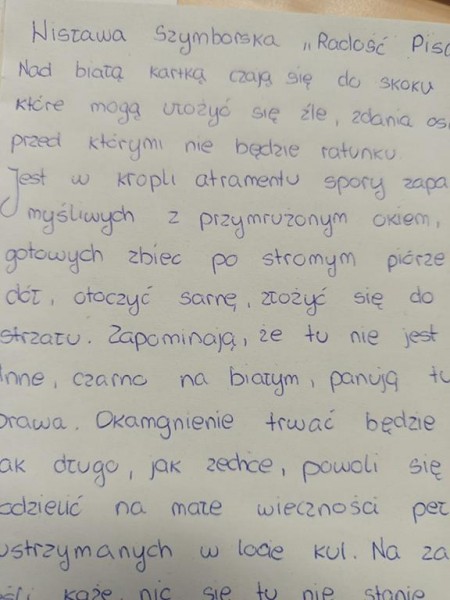 Wisława Szymborska „Radość Pisa
Nad białą kartką czają się do skoku
które mogą ułożyć się źle, zdania osa
przed którymi nie będzie ratunku.
Jest w kropli atramentu spory zapa
myśliwych z przymrużonym okiem,
gotowych zbiec po stromym piórze
dół, otoczyć sarnę, złożyć się do
strzału. Zapominają, że tu nie jest
Inne, czarno na białym, panują tu
prawa. Okamgnienie trwać będzie
ak długo, jak zechcę, powoli się
odzielić na małe wieczności peł
wstrzymanych w locie kul. Na za
eśli każę, nic się tu nie stanie